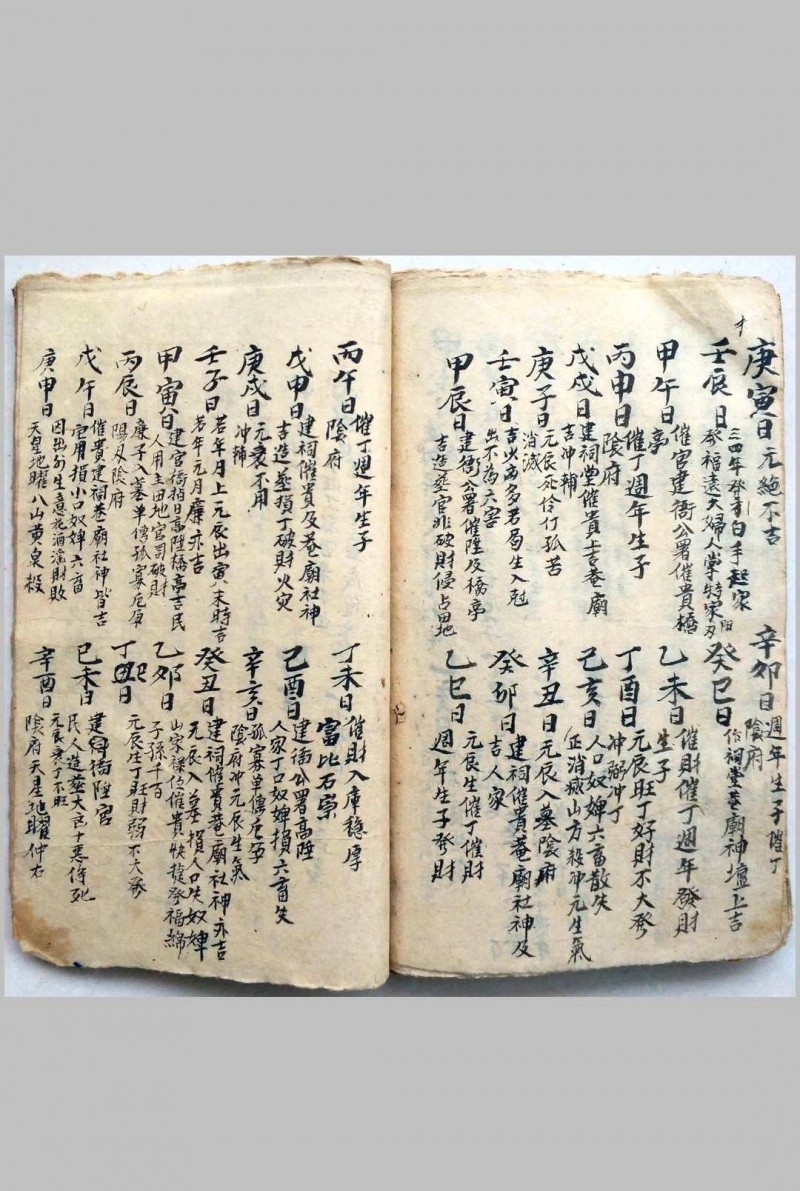 庚寅日元絶不吉
壬辰日三四年發青白手起家
發福遠大婦人掌特家
甲午日催官建衙公署催貴橋
亭
丙申日催丁週年生子
陰府
戊戌日建祠堂催貴上吉菴廟
吉冲輔
庚子日元辰死伶仃孤苦
消滅
壬寅日吉火災多若局生入冠
出不為大害
甲辰日建衙公署催陞及橋亭
吉造葬官非破財侵占田地
辛卯日週年生子催丁
陰府
癸巳日修祠堂菴廟神壇上吉
乙未日催財催丁週年發財
生子
丁酉日元辰旺丁好財不大發
冲弼冲丁
己亥日人口奴婢六畜散失
正消滅山方殺冲元生氣
辛丑日元辰入墓陰府
癸卯日建祠催貴菴廟社神及
吉人家
乙巳日元辰生催丁催財
週年生子發財
丙午日催丁週年生子
陰府
戊申日建祠催貴及菴廟社神
吉造葬損丁破財火灾
庚戌日元衰不用
冲輔
壬子日若年月上元辰出寅未時吉
若年元月廉亦吉
甲寅日建官衙指日高陞橋亭吉民
人用主田地官司破財
丙辰日廉子入墓单傳孤寡
陽及陰府
戊午日催貴建祠菴廟社神皆吉
宦用損小口奴婢六畜
因出外生意花酒淫財敗
庚申日天星地曜八山黄泉殺
丁未日催財入庫穏厚
富比石崇
己酉日建衙公署高陞
人家丁口奴婢損六畜失
辛亥日孤寡单傳
陰府冲元辰生氣
癸丑日建祠催貴菴廟社神亦吉
元辰入墓損人口失奴婢
乙卯日山家祿位催貴快捷發福綿
子孫千百
丁巳日元辰生丁旺財弱不大發
己未日建衙陞官
民人造葬大凶十惡侍死
元辰衰丁不旺
辛酉日陰府天星地曜